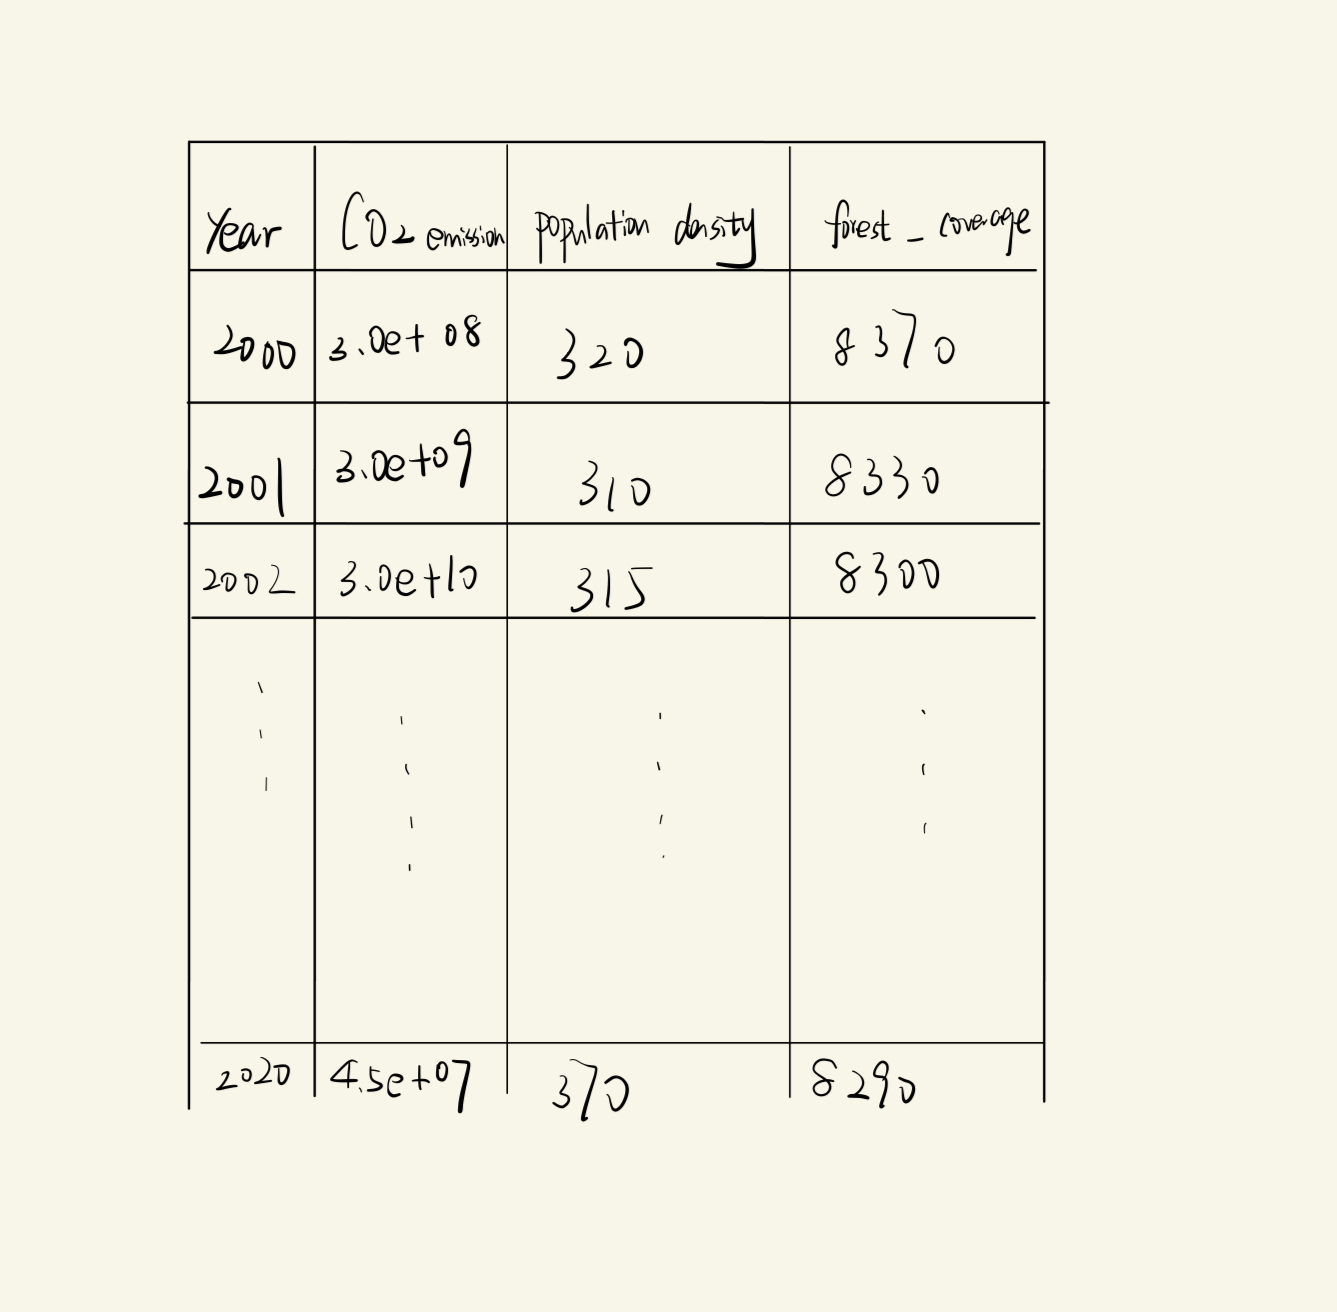 Year CO2 emission population density forest_coverage
2000 3.0e+08 320 8370
2001 3.0e+09 310 8330
2002 3.0e+10 315 8300
2020 4.5e+07 370 8290